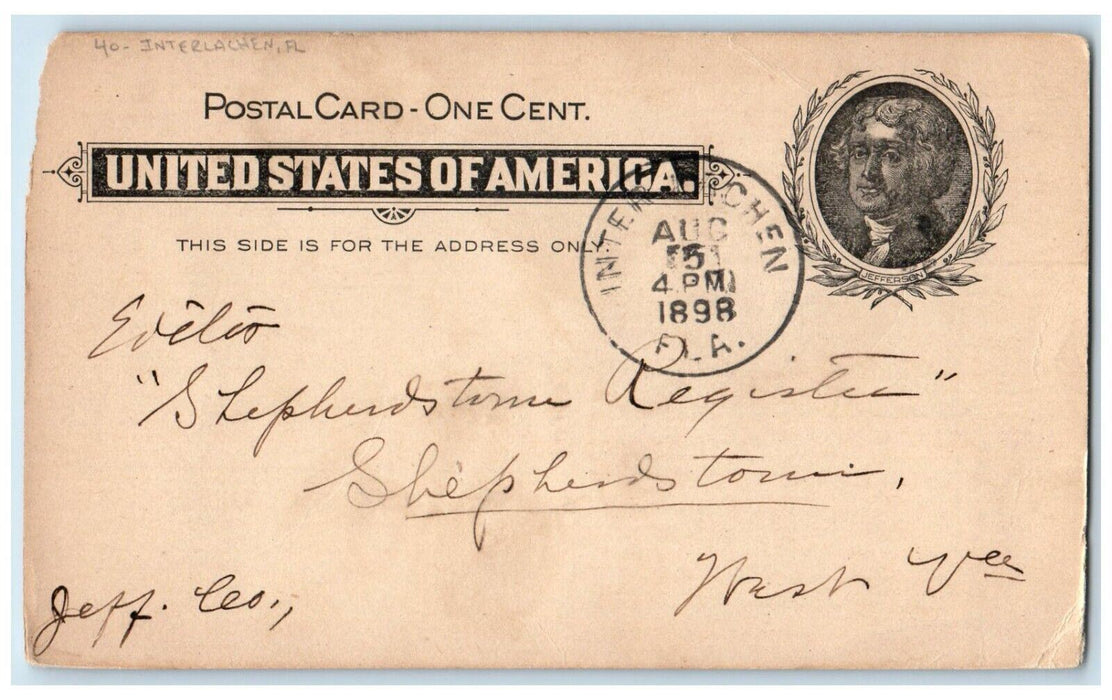 40- INTERLACHEN, FL
POSTAL CARD - ONE CENT.
UNITED STATES OF AMERICA.
THIS SIDE IS FOR THE ADDRESS ONLY.
JEFFERSON
INTERLACHEN
AUG
15
4 PM
1898
FLA.
Editor
"Shepherdstown Register"
Shepherdstown,
West Va
Jeff. Co.,